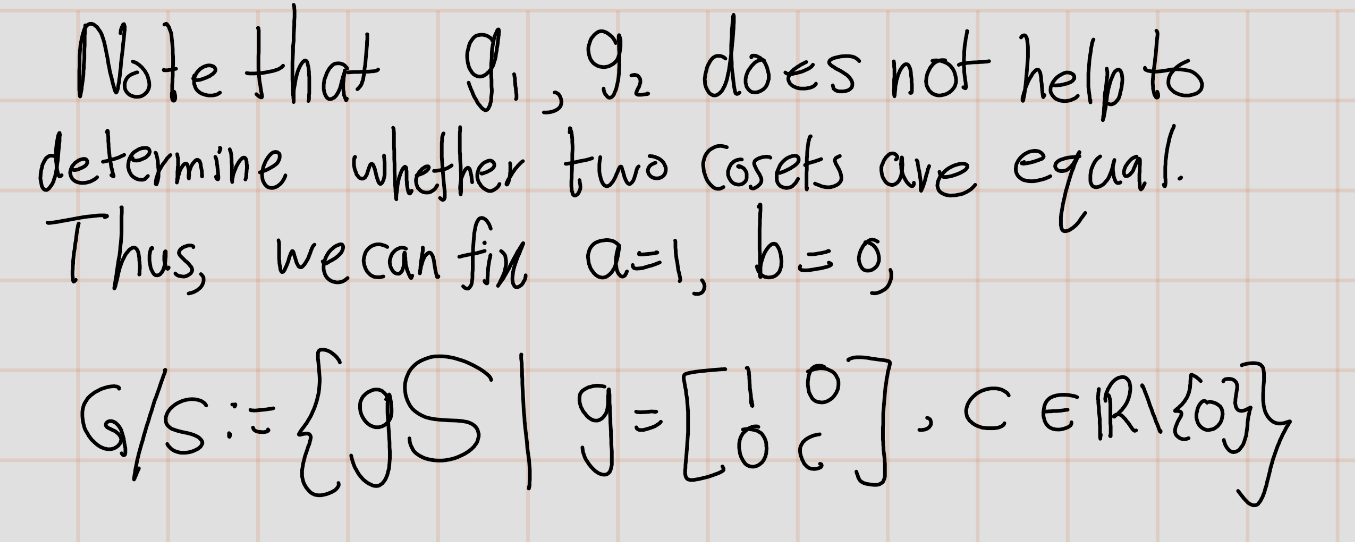 Note that g₁, g₂ does not help to
determine whether two cosets are equal.
Thus, we can fix a=1, b=0,
G/S := {gS | g = [1 0; 0 c], c ∈ ℝ\{0}}